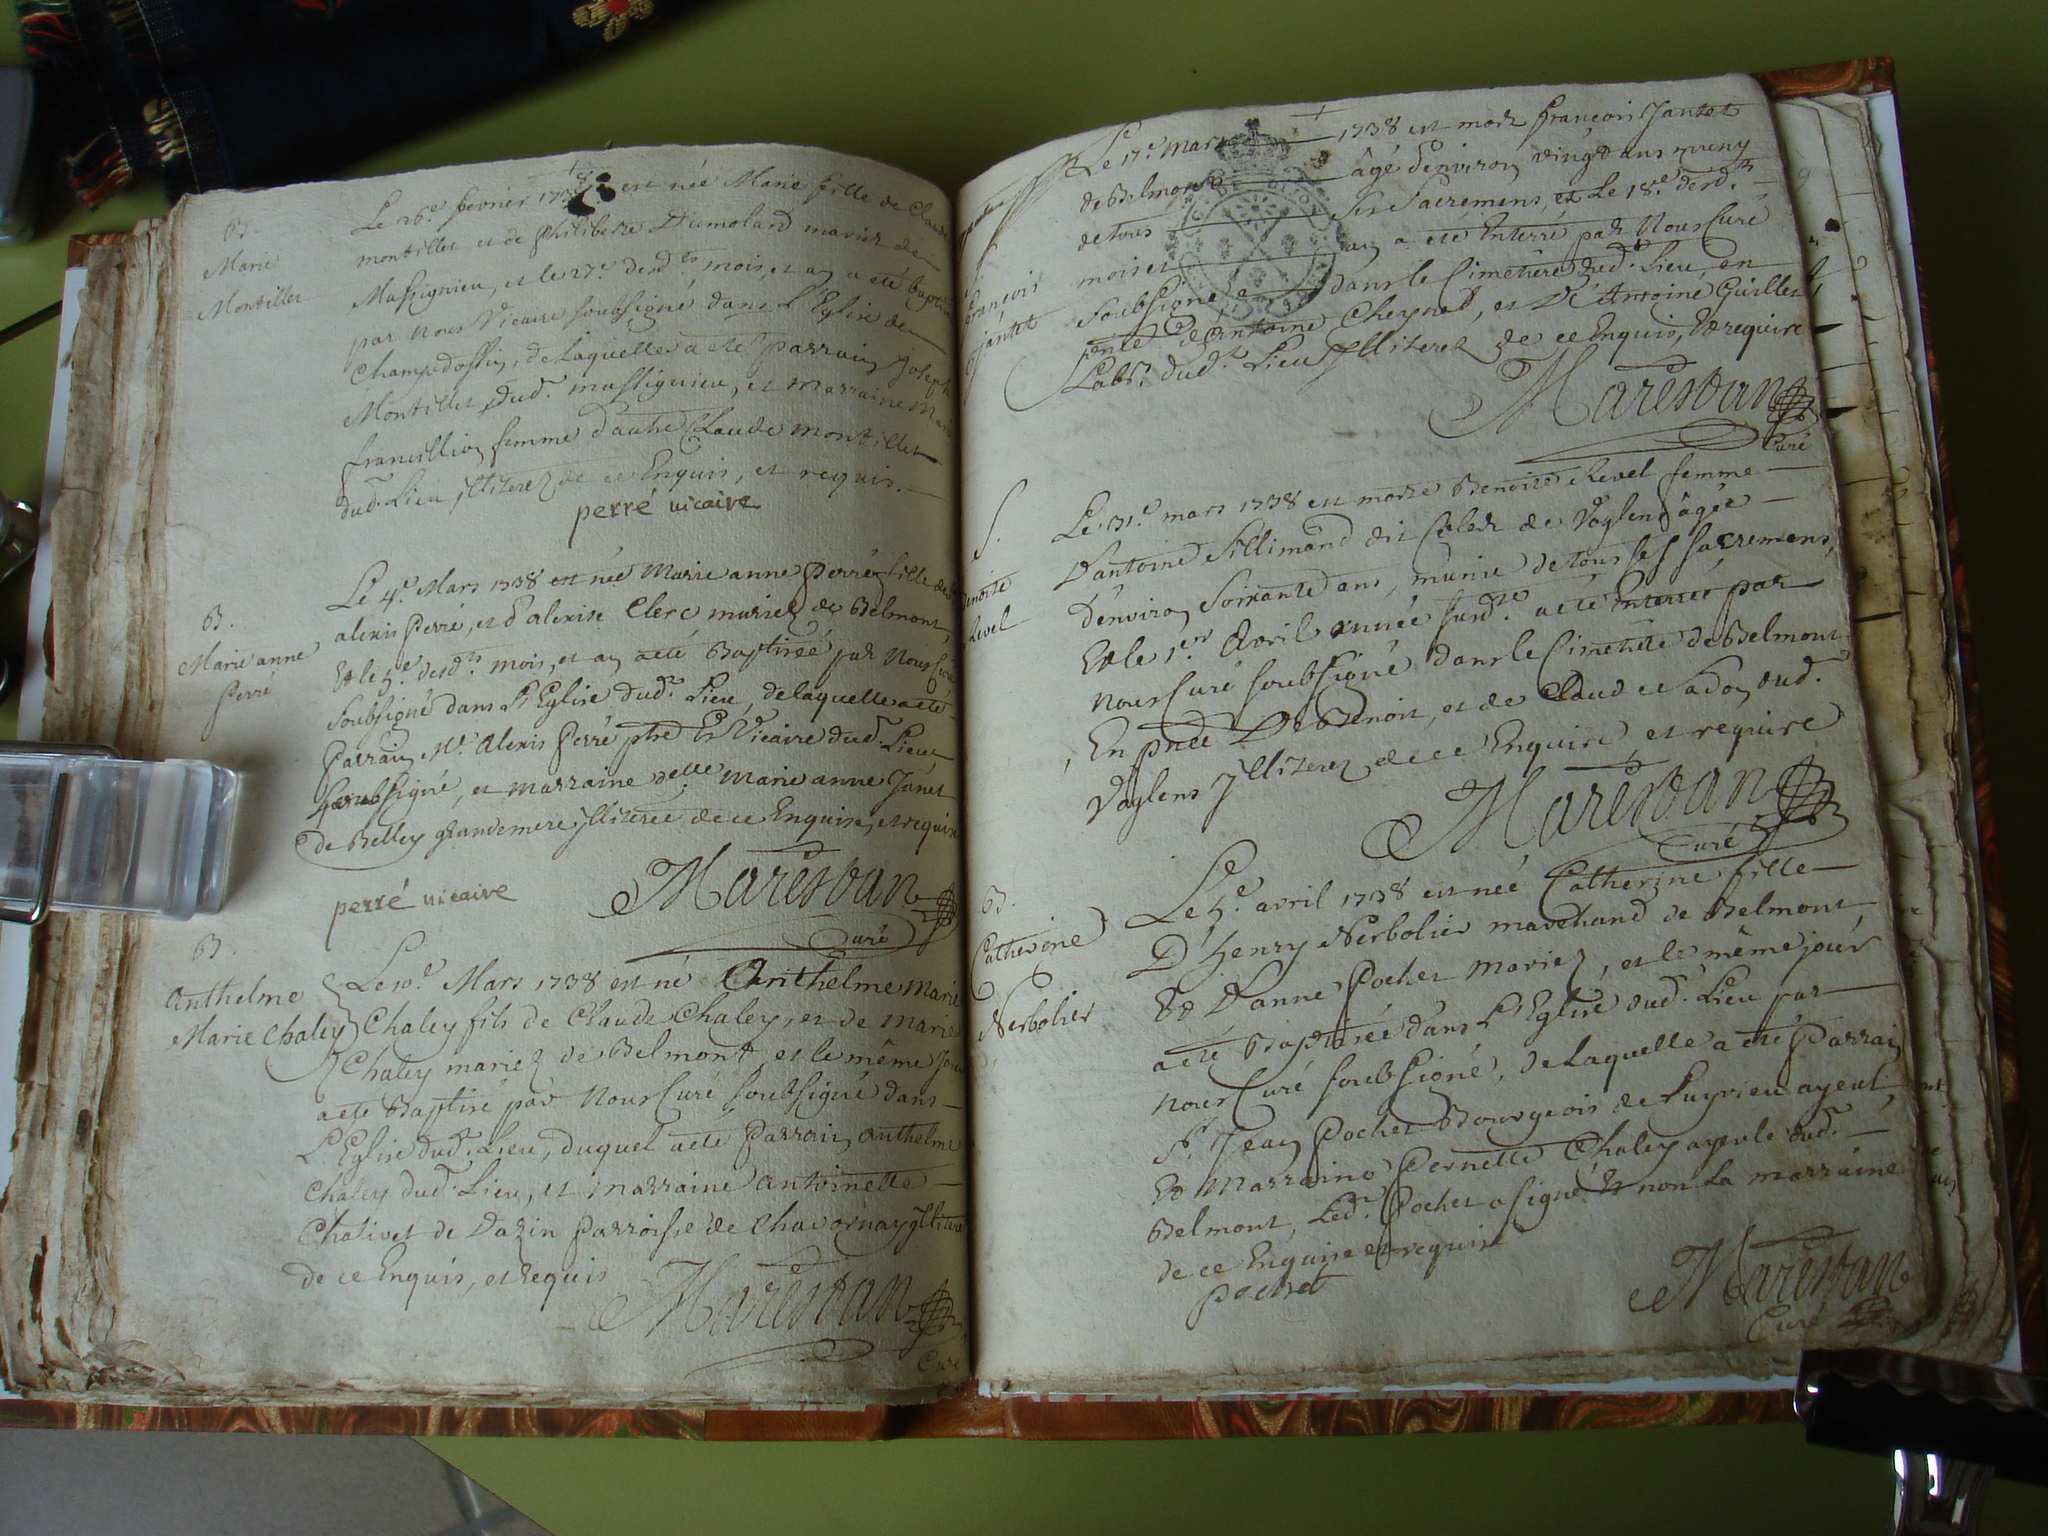 B.
Marie
Montillet
Le 26.e fevrier 1738 est née Marie fille de Claude
montillet et de philiberte Dumolard mariez de
Massignieu, et le 27.e desdts mois, et an a eté baptisée
par nous Vicaire soubsigné dans L'Eglise de
Champdossin, de Laquelle a eté parrain Joseph
Montillet dud. massignieu, et marraine
francillion femme d'autre Claude montillet
dud. Lieu jlliterez de ce Enquis, et requis.
perré vicaire
B.
Marie anne
Perré
Le 4.e Mars 1738 est née Marie anne Perré fille de
alexis Perré, et d'alexise Clerc mariez de Belmont,
Et le 5.e desdts mois, et an a eté Baptisée par Nous Curé
soubsigné dans L'Eglise dud. Lieu, de laquelle a eté
Parrain Mr. Alexis Perré ptre Et Vicaire dud. Lieu
soubsigné, et marraine delle marie anne Janet
de Belley grandemere jlliterée de ce Enquise, et requise
perré vicaire
Marestan
Curé
B.
Anthelme
Marie Chaley
Le 10.e Mars 1738 est né Anthelme Marie
Chaley fils de Claude Chaley, et de Marie
Chaley mariez de Belmont, et le même jour
a eté Baptisé par Nous Curé soubsigné dans
L'Eglise dud. Lieu, duquel a eté Parrain anthelme
Chaley dud. Lieu, et marraine antoinette
Chalivet de Dazin Parroisse de Chavornay jlliterez
de ce Enquis, et Requis
Marestan
Curé
françois
Jantet
Le 17.e Mars 1738 est mort françois Jantet
de Belmont âgé d'environ vingt ans muny
de tous ses Sacremens, et Le 18.e desdts
mois et an a eté Enterré par Nous Curé
soubsigné dans le Cimetiere dud. Lieu, en
pnce de antoine Cheynet, et de Antoine Guillet
Labrs. dud. Lieu jlliterez de ce Enquis, Et requis
Marestan
Curé
S.
Benoite
Revel
Le 31.e mars 1738 est morte Benoite Revel femme
D'antoine Sillimand dit de Voglens âgée
d'environ soixante ans, munie de tous ses sacremens,
Et le 1.er Avril année susdte a eté Enterrée par
nous Curé soubsigné dans le Cimetiere de Belmont
En pnce De Benoit, et de Claude Sadon dud.
Voglens jlliterez de ce Enquis et requis
Marestan
Curé
B.
Catherine
Nerbolier
Le 5.e avril 1738 est née Catherine fille
D'henry Nerbolier marchand de Belmont,
Et D'anne Pochet mariez, et le même jour
a eté Baptisée dans L'Eglise dud. Lieu par
nous Curé soubsigné, de Laquelle a eté Parrain
Sr. Jean Pochet Bourgeois de Luyrieu ayeul,
Et Marraine Pernette Chaley ayeule dud.
Belmont, Led. Pochet a signé Et non La marraine
de ce Enquise et requise
pochet
Marestan
Curé